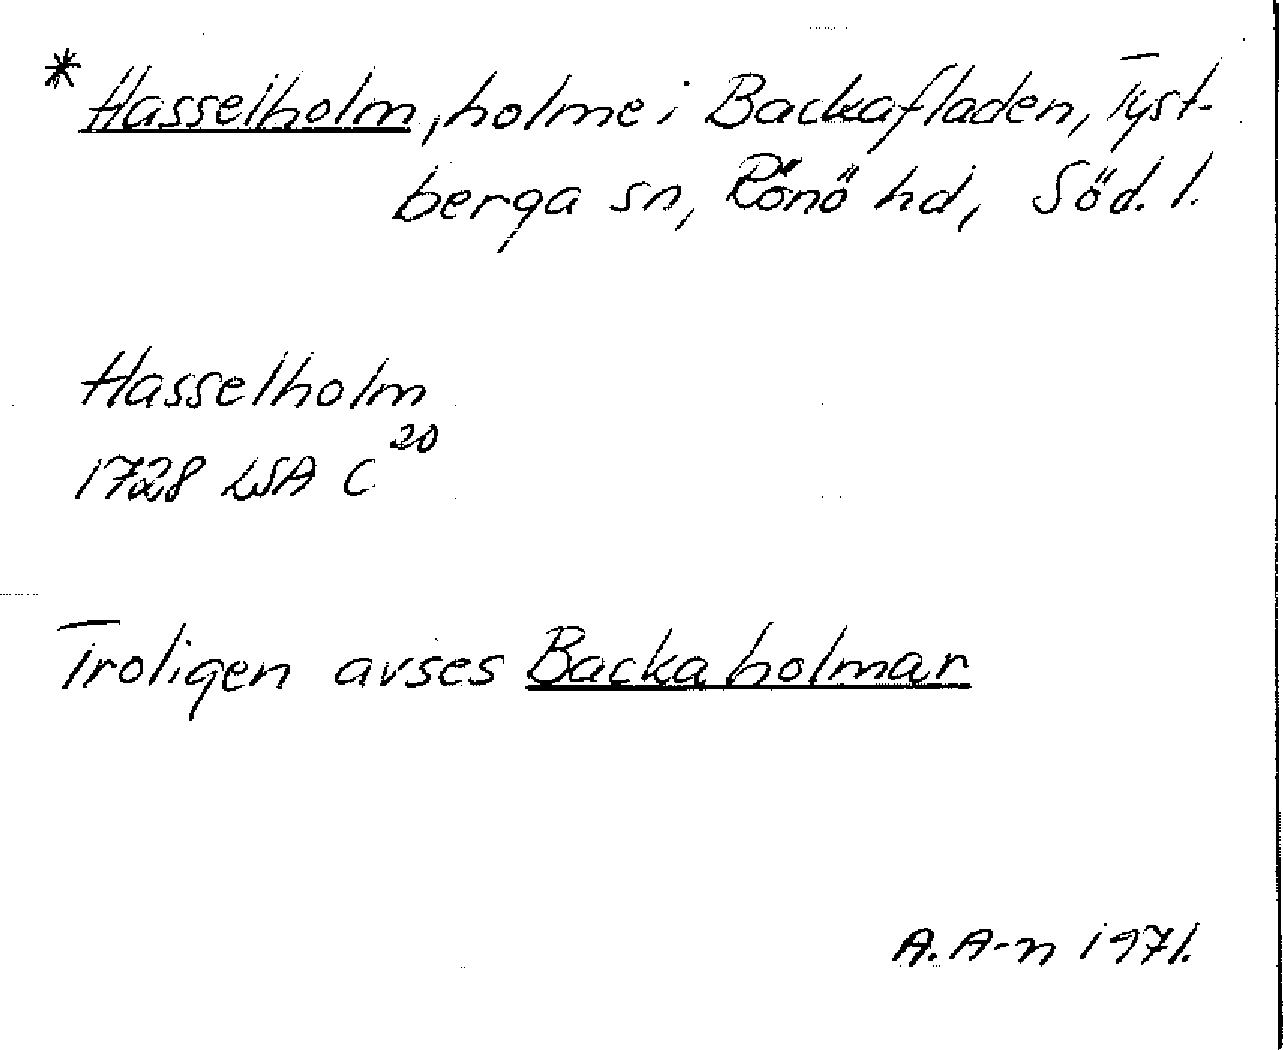 * Hasselholm, holme i Backafladen, Tyst-
berga sn, Rönö hd, Söd. l.
Hasselholm
1728 LSA C 20
Troligen avses Backaholmar
A. A-n 1971.